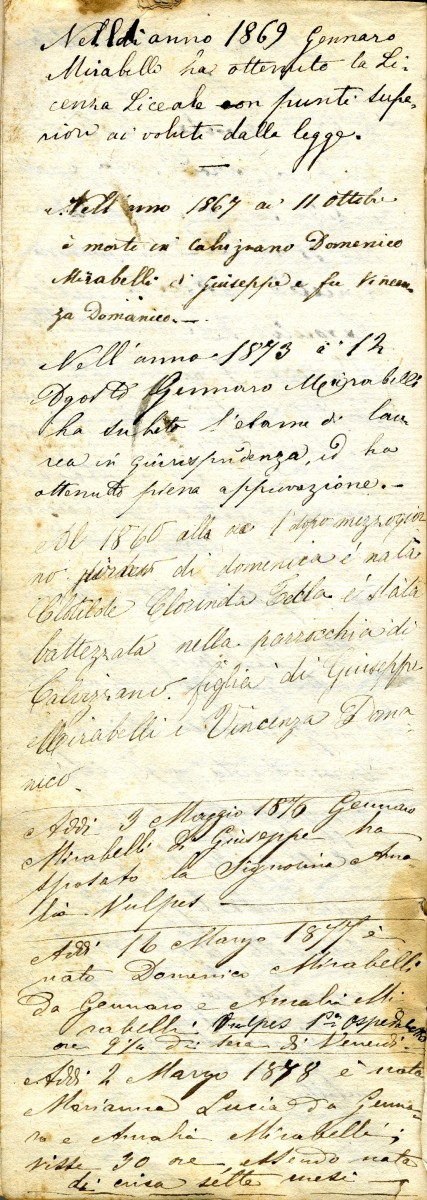 Nell di anno 1869 Gennaro
Mirabelli ha ottenuto la Li-
cenza Liceale con punti supe-
riori ai voluti dalla legge.
Nell'anno 1867 ai 11 ottobre
è morto in Calvizzano Domenico
Mirabelli di Giuseppe e fu Vincen-
za Domanico.
Nell'anno 1873 a' 12
Agosto Gennaro Mirabelli
ha subito l'esame di lau-
rea in giurisprudenza, ed ha
ottenuto piena approvazione.
Al 1860 alla ore 1 dopo mezzogior
no di domenica é nata
Clotilde Clorinda é stata
battezzata nella parrocchia di
Calvizzano figlia di Giuseppe
Mirabelli e Vincenza Doma-
nico.
Addi 3 Maggio 1876 Gennaro
Mirabelli di Giuseppe ha
sposato la Signorina Ama-
lia Vulpes
Addi 16 Marzo 1877 è
nato Domenico Mirabelli
da Gennaro e Amalia Mi
rabelli. Vulpes
ore 9 ½ di sera di Venerdi
Addi 2 Marzo 1878 è nata
Marianna Lucia da Genna-
ro e Amalia Mirabelli;
visse 30 ore, essendo nata
di circa sette mesi